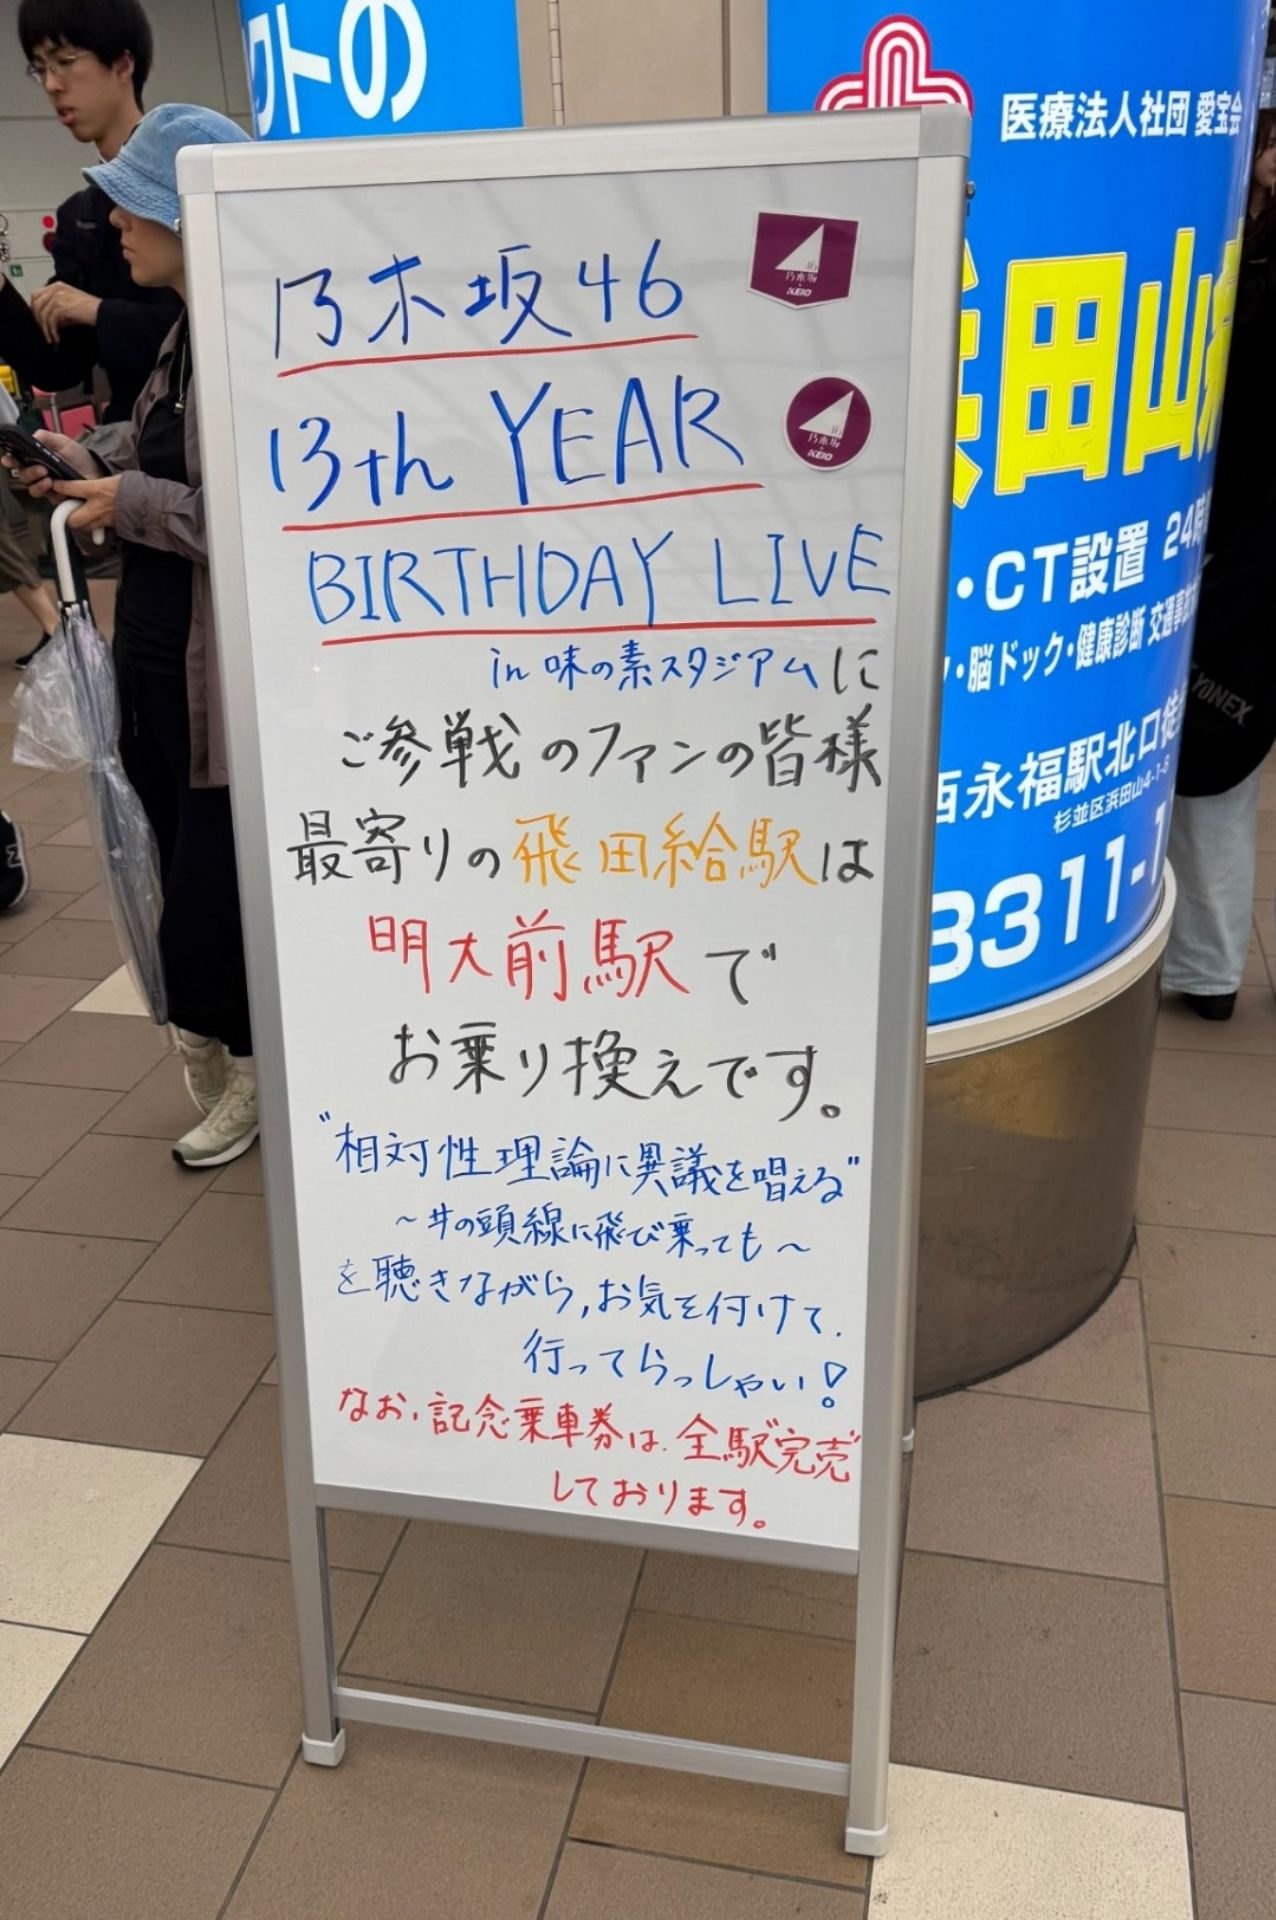 クトの
医療法人社団 愛宝会
浜田山病
・CT設置 24時
・脳ドック・健康診断 交通事故
西永福駅北口徒
杉並区浜田山4-1-8
3311-1
YONEX
乃木坂46
乃木坂
KEIO
13th YEAR
46
乃木坂
KEIO
BIRTHDAY LIVE
in 味の素スタジアムに
ご参戦のファンの皆様
最寄りの飛田給駅は
明大前駅で
お乗り換えです。
"相対性理論に異議を唱える"
～井の頭線に飛び乗っても～
を聴きながら,お気を付けて、
行ってらっしゃい!
なお、記念乗車券は、全駅完売
しております。